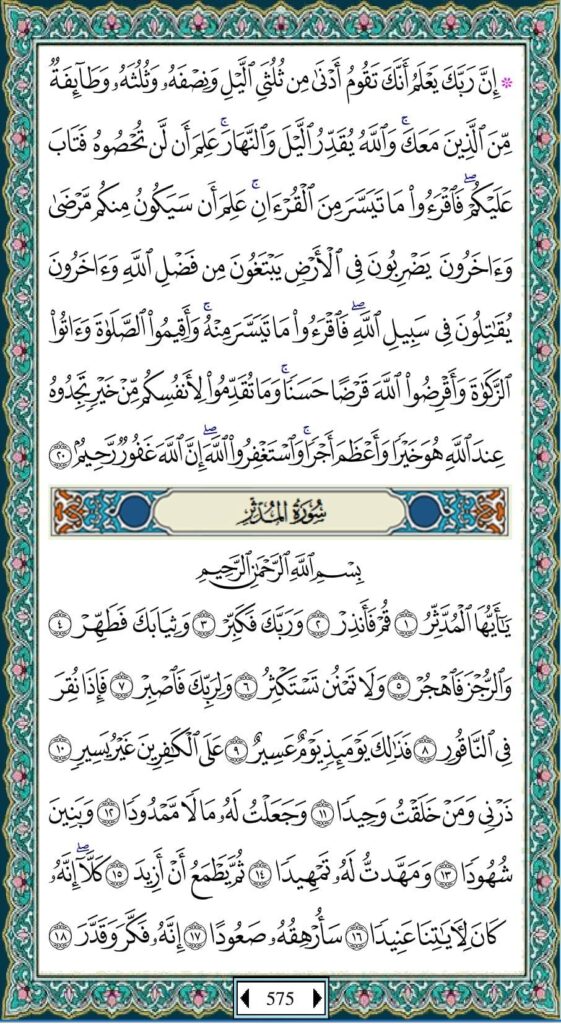 ۞ إِنَّ رَبَّكَ يَعْلَمُ أَنَّكَ تَقُومُ أَدْنَىٰ مِن ثُلُثَىِ ٱلَّيْلِ وَنِصْفَهُۥ وَثُلُثَهُۥ وَطَآئِفَةٌۭ
مِّنَ ٱلَّذِينَ مَعَكَ ۚ وَٱللَّهُ يُقَدِّرُ ٱلَّيْلَ وَٱلنَّهَارَ ۚ عَلِمَ أَن لَّن تُحْصُوهُ فَتَابَ
عَلَيْكُمْ ۖ فَٱقْرَءُوا۟ مَا تَيَسَّرَ مِنَ ٱلْقُرْءَانِ ۚ عَلِمَ أَن سَيَكُونُ مِنكُم مَّرْضَىٰ
وَءَاخَرُونَ يَضْرِبُونَ فِى ٱلْأَرْضِ يَبْتَغُونَ مِن فَضْلِ ٱللَّهِ وَءَاخَرُونَ
يُقَـٰتِلُونَ فِى سَبِيلِ ٱللَّهِ ۖ فَٱقْرَءُوا۟ مَا تَيَسَّرَ مِنْهُ ۚ وَأَقِيمُوا۟ ٱلصَّلَوٰةَ وَءَاتُوا۟
ٱلزَّكَوٰةَ وَأَقْرِضُوا۟ ٱللَّهَ قَرْضًا حَسَنًۭا ۚ وَمَا تُقَدِّمُوا۟ لِأَنفُسِكُم مِّنْ خَيْرٍۢ تَجِدُوهُ
عِندَ ٱللَّهِ هُوَ خَيْرًۭا وَأَعْظَمَ أَجْرًۭا ۚ وَٱسْتَغْفِرُوا۟ ٱللَّهَ ۖ إِنَّ ٱللَّهَ غَفُورٌۭ رَّحِيمٌۢ ٢٠
سُورَةُ الْمُدَّثِّرِ
بِسْمِ ٱللَّهِ ٱلرَّحْمَـٰنِ ٱلرَّحِيمِ
يَـٰٓأَيُّهَا ٱلْمُدَّثِّرُ ١ قُمْ فَأَنذِرْ ٢ وَرَبَّكَ فَكَبِّرْ ٣ وَثِيَابَكَ فَطَهِّرْ ٤
وَٱلرُّجْزَ فَٱهْجُرْ ٥ وَلَا تَمْنُن تَسْتَكْثِرُ ٦ وَلِرَبِّكَ فَٱصْبِرْ ٧ فَإِذَا نُقِرَ
فِى ٱلنَّاقُورِ ٨ فَذَٰلِكَ يَوْمَئِذٍۢ يَوْمٌ عَسِيرٌ ٩ عَلَى ٱلْكَـٰفِرِينَ غَيْرُ يَسِيرٍۢ ١٠
ذَرْنِى وَمَنْ خَلَقْتُ وَحِيدًۭا ١١ وَجَعَلْتُ لَهُۥ مَالًۭا مَّمْدُودًۭا ١٢ وَبَنِينَ
شُهُودًۭا ١٣ وَمَهَّدتُّ لَهُۥ تَمْهِيدًۭا ١٤ ثُمَّ يَطْمَعُ أَنْ أَزِيدَ ١٥ كَلَّآ ۖ إِنَّهُۥ
كَانَ لِـَٔايَـٰتِنَا عَنِيدًۭا ١٦ سَأُرْهِقُهُۥ صَعُودًا ١٧ إِنَّهُۥ فَكَّرَ وَقَدَّرَ ١٨
575